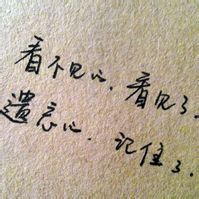 看不见心，看见了。
遗忘心．记住了．